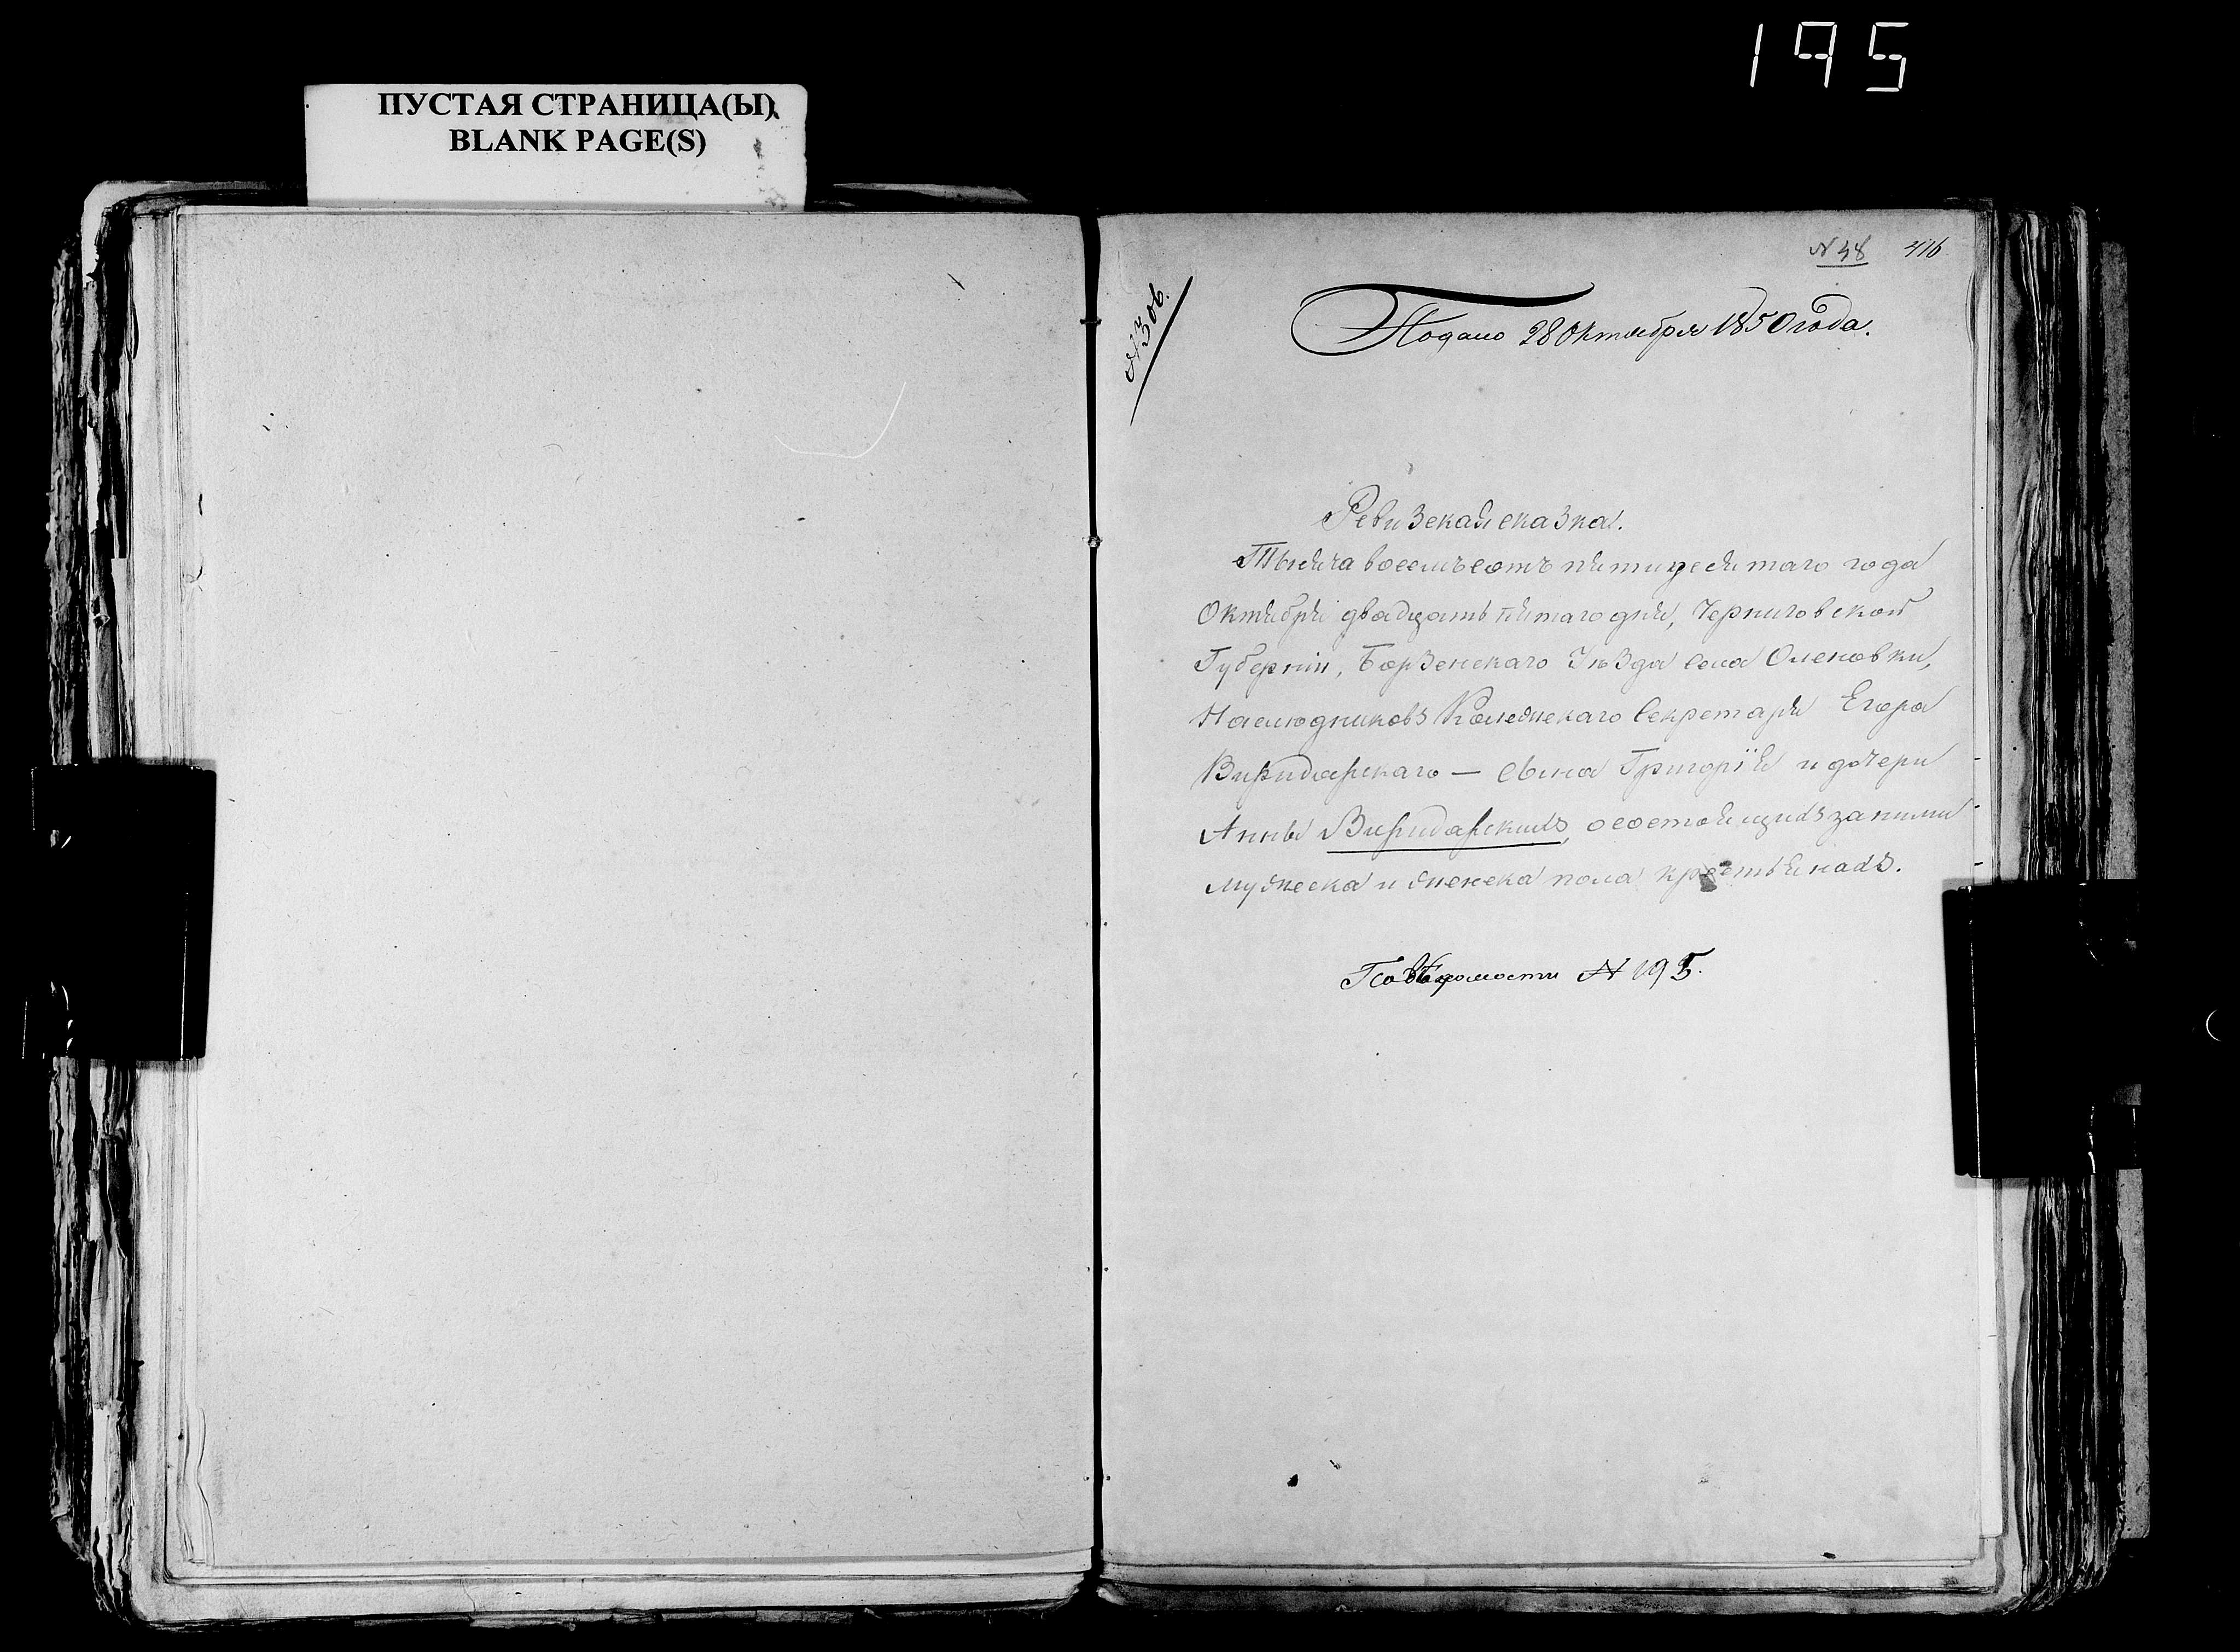 195
ПУСТАЯ СТРАНИЦА(Ы)
BLANK PAGE(S)
N 48 416
N 306.
Подано 28 Октября 1850 года.
Ревизская сказка.
Тысяча восемьсотъ пятидесятаго года
Октября двадцать пятаго дня, Черниговской
Губерніи, Борзенскаго Уѣзда села Оленовки,
Наслюдниковъ Колежскаго Секретаря Егора
Виридарскаго — сына Григорія и дочери
Анны Виридарскихъ, о состоящихъ за ними
мужеска и женска пола крестьянахъ.
По Вѣдомости N 195.